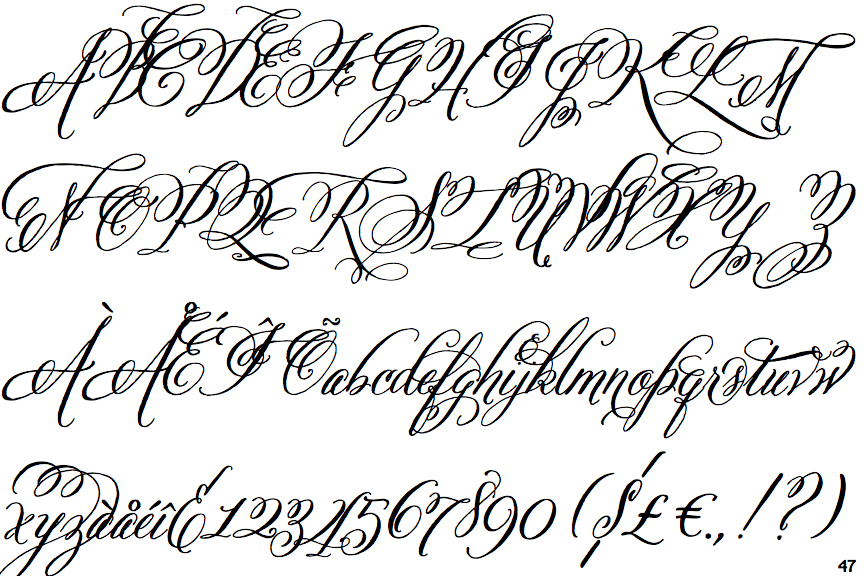 ABCDEFGHIJKLM
NOPQRSTUVWXYZ
ÀÅÉÎÕabcdefghijklmnopqrstuvw
xyzàåéîõ1234567890($£€.,!?)
47